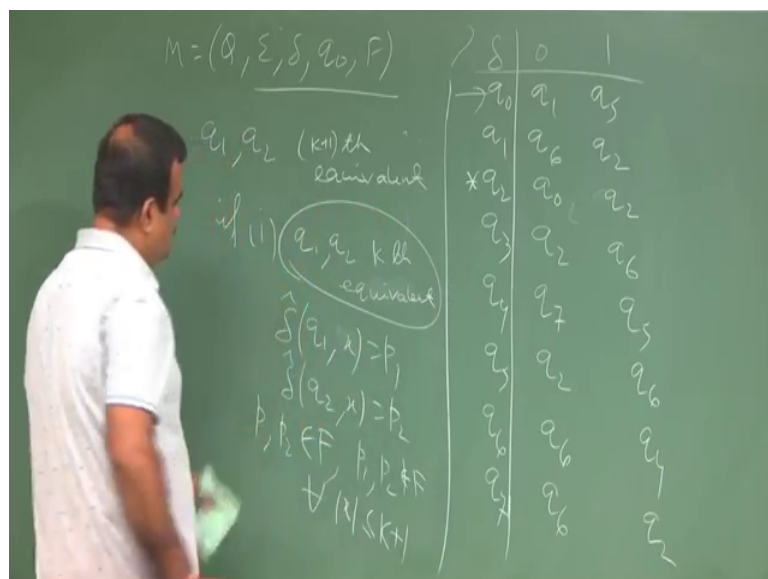 M = (Q, Σ, δ, q₀, F)
q₁, q₂ (k+1)th
equivalent
if (i) q₁, q₂ k th
equivalent
δ̂(q₁, x) = p₁
δ̂(q₂, x) = p₂
p₁, p₂ ∈ F, p₁, p₂ ∉ F
∀ |x| ≤ k+1
δ 0 1
→q₀ q₁ q₅
q₁ q₆ q₂
*q₂ q₀ q₂
q₃ q₂ q₆
q₄ q₇ q₅
q₅ q₂ q₆
q₆ q₆ q₄
q₇ q₆ q₂